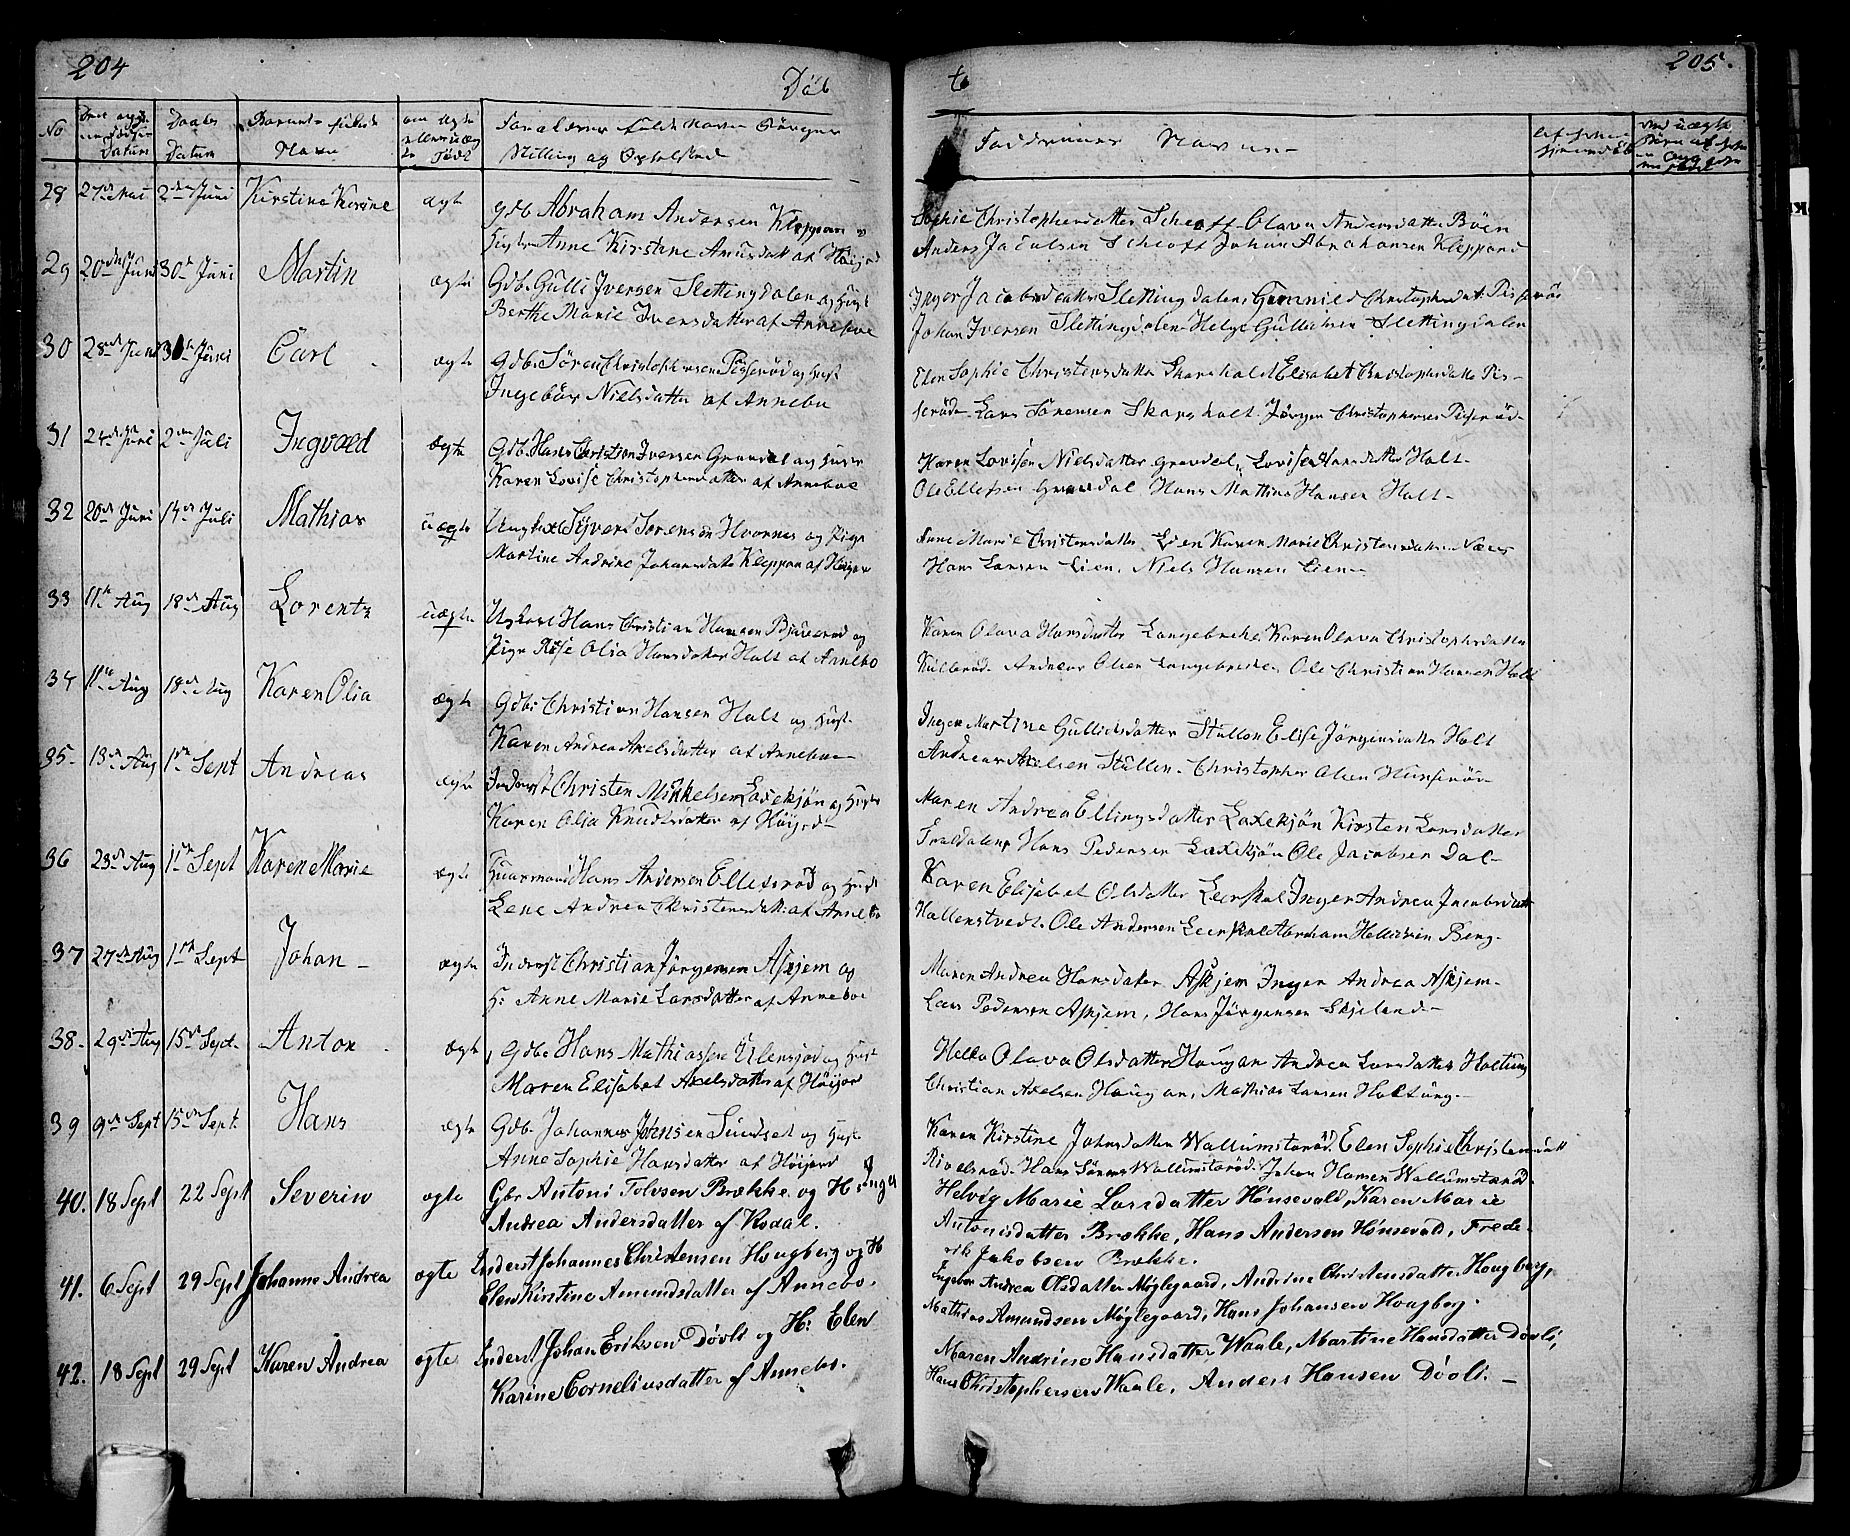 204
Døb
No
Datum
Daabs
Datum
Navn
om ægte
Født
Stilling og Opholdsted
28 27de Mai 2den Juni Kirstine Karine ægte Gdb Abraham Andersen Kleppan og
Anne Kirstine Amundsdatt af Høijord
29 20de Juni 30te Juni Martin ægte Gdb. Gulli Iversen Slettingdalen og Hust
Berthe Marie Iversdatter af Anneboe
30 28de Juni 30te Juni Carl - ægte Gdb. Søren Christophersen Pisserød og Hust
Ingebor Nielsdatter af Annebu
31 24de Juni 2den Juli Ingvald ægte Gdb. Hans Christian Iversen Grøndal og Hustr
Karen Lovise Christophersdatter af Anneboe
32 20de Juni 14de Juli Mathias uægte Ungkarl Syvert Sørensen Hvarnes og Pige
Martine Andrine Johansdatt Kleppan af Høijor
33 11te Aug 18de Aug Lorentz uægte Ungkarl Hans Christian Hansen og
Pige Olia Hansdatter Holt af Annebo
34 11te Aug 18de Aug Karen Olia ægte Gdb: Christian Hansen Holt og Hust-
Karen Andrea Axelsdatter af Anneboe
35- 13de Aug 1ste Sept Andreas ægte Inderst Christen Mikkelsen Laxekjøn og Hustr
Karen Olia Knudtsdatter af Høijord-
36 23de Aug 1ste Sept Karen Marie ægte Huusmand Hans Andersen Ellefsrød og Hust
Lene Andrea Christensdatt: af Annebo
37 27de Aug 1ste Sept Johan - ægte Inderst Christian Jørgensen Askjem og
H: Anne Marie Larsdatter af Anneboe
38- 29de Aug 15de Sept- Anton - ægte Gdbr Hans Mathiassen Ulensjød og Hust
Maren Elisabet Axelsdatter af Høijor
39 9de Sept 15de Sept. Hans ægte Gdb. Johannes Johnsen Sundset og Hust
Anne Sophie Hansdatter af Høijord
40. 18 Sept 22 Sept Severin ægte Gbr Antoni Tolvsen Brække og H: Inger
Andrea Andersdatter af Kodal.
41. 6 Sept 29 Sept Johanne Andrea ægte Inderst Johannes Christensen Hougberg og H
Elen Kirstine Amundsdatter af Annebo.
42. 18 Sept 29 Sept Karen Andrea ægte Inderst Johan Eriksen Døvle og H: Elen
Karine Corneliusdatter af Annebo.
te
205.
Faddernes Navne-
Sophie Christophersdatter Olava Andersdatter Bøen
Anders Jacobsen Johan Abrahamsen Kleppand
Inger Jacobsdatter Slettingdalen, Gunnild Christophersdat: Pisserød
Johan Iversen Slettingdalen Helge Gullichsen Slettingdalen
Elen Sophie Christensdatter Skarsholt Elisabet Christophersdatte Pis-
serød- Lars Sørensen Skarsholt- Jørgen Christophersen Pisserød-
Karen Lovisen Nielsdatter Grøndal, Lovise Hansdatter Holt-
Ole Ellefsen Grøndal Hans Mathias Hansen Holt-
Anne Marie Christensdatter Lien Karen Marie Christensdatter Næss
Hans Larsen Lien, Niels Hansen Lien-
Karen Olava Hansdatter Langebrekke Karen Olava Christophersdatter
Kullerød Andreas Olsen Langebrekke Ole Christian Hansen Holt
Inger Martine Gullichsdatter Stullen Elise Jørgensdatter Holt
Andreas Axelsen Stullen- Christopher Olsen Hunserød-
Maren Andrea Ellingsdatter Laxekjøn Kirsten Larsdatter
Hans Pedersen Laxekjøn Ole Jacobsen Dal-
Karen Elisabet Olsdatter Leerskal Inger Andrea Jacobsdatt
Hallenstvedt. Ole Andersen Leerskal Abraham Hellichsen Berg-
Maren Andrea Hansdatter Askjem Inger Andrea Askjem-
Lars Pedersen Askjem, Hans Jørgensen Skjeland-
Helle Olava Olsdatter Hougan Andrea Larsdatter Holtung
Christian Axelsen Hougan, Mathias Larsen Holtung.-
Karen Kirstine Johnsdatter Wallumsrød Elen Sophie Christensdatt
Rivelsrød. Hans Sørens Wallumsrød. Johan Hansen Wallumsrød.
Helvig Marie Larsdatter Hønsevald, Karen Marie
Antonisdatter Brække, Hans Andersen Hønsevald, Frede-
rik Jakobsen Brække.
Ingeborg Andrea Olsdatter Møglegaard, Andrine Christensdatter Hougberg,
Mathias Amundsen Møglegaard, Hans Johansen Hougberg.
Maren Andrine Hansdatter Waale, Martine Hansdatter Døvle,
Hans Christophersen Waale, Anders Hansen Døvle. -